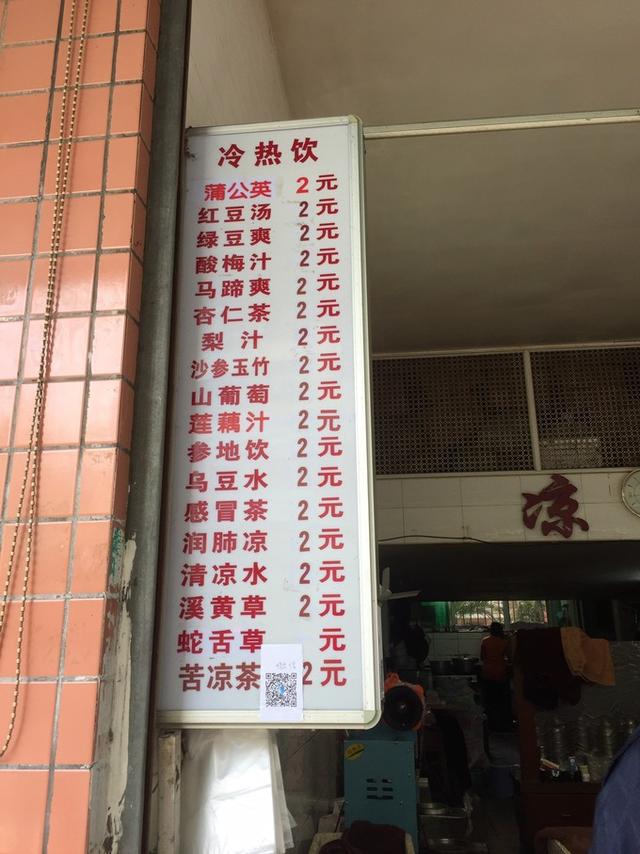 冷热饮
蒲公英 2元
红豆汤 2元
绿豆爽 2元
酸梅汁 2元
马蹄爽 2元
杏仁茶 2元
梨汁 2元
沙参玉竹 2元
山葡萄 2元
莲藕汁 2元
参地饮 2元
乌豆水 2元
感冒茶 2元
润肺凉 2元
清凉水 2元
溪黄草 2元
蛇舌草 元
苦凉茶 2元
微信
凉